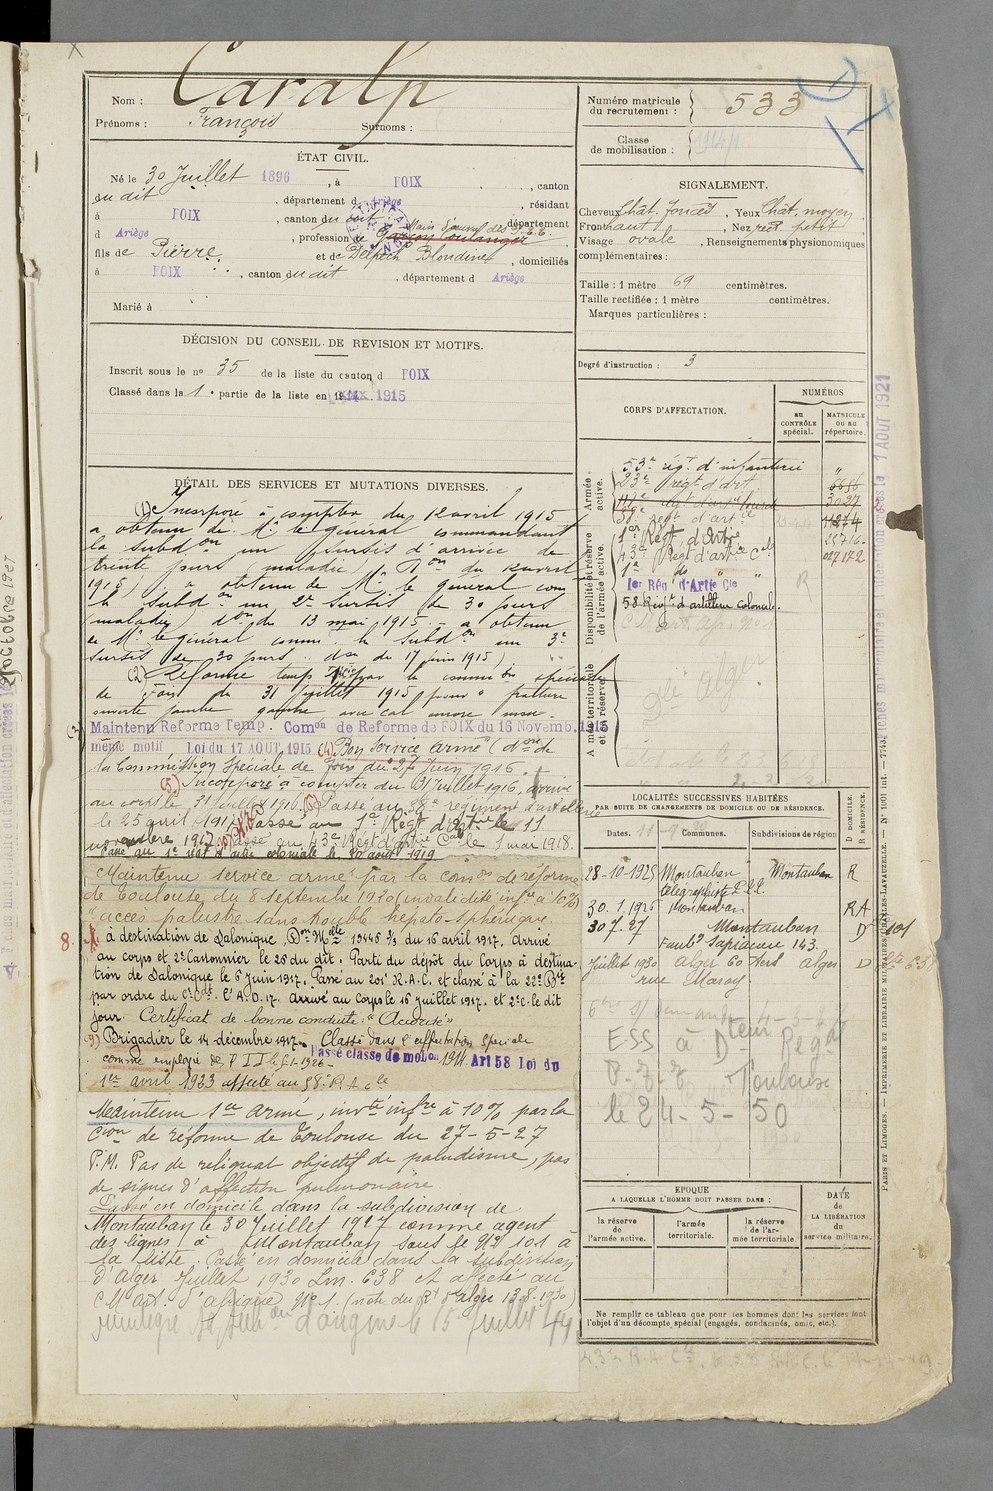 Caralp
Nom :
Prénoms : François Surnoms :
ÉTAT CIVIL.
Né le 30 Juillet 1896, à FOIX, canton
du dit, département d Ariège, résidant
à FOIX, canton du dit, département
d Ariège, profession de Garçon boulanger
Main d'œuvre des P.T.T.
fils de Pierre et de Delpech Blondine, domiciliés
à FOIX, canton du dit, département d Ariège
Marié à
DÉCISION DU CONSEIL DE REVISION ET MOTIFS.
Inscrit sous le nº 35 de la liste du canton d FOIX
Classé dans la 1e partie de la liste en 1915
DÉTAIL DES SERVICES ET MUTATIONS DIVERSES.
(1) Incorporé à compter du 12 avril 1915
a obtenu de Mr le général commandant
la subdon un sursis d'arrivée de
trente jours (maladie)
1915) a obtenu de Mr le général com
la subdon un 2e sursis de 30 jours
(maladie) don du 13 mai 1915 - a obtenu
de Mr le général comm la subdon un 3e
sursis de 30 jours don du 17 juin 1915)
(2) Réformé temp par la commion spéciale
de Foix du 31 juillet 1915 pour fracture
ouverte jambe gauche avec cal encore mou.
(3) Maintenu Reforme Temp. Comon de Reforme de FOIX du 16 Novemb. 1915
même motif, Loi du 17 AOUT 1915 (4) Bon service armé (don de
la Commission Spéciale de Foix du 27 Juin 1916.
(5) Incorporé à compter du 31 juillet 1916, arrivé
au corps le 31 juillet 1916. (6) Passé au 38e régiment d'artillerie
le 25 avril 1917. Passé au 1er Régt d'Artrie le 11
novembre 1917. Passé au 43e Régt d'Artie Cale le 1 mai 1918.
Passé au 1er régt d'artie coloniale le 20 août 1919
Maintenu service armé par la comon de réforme
de Toulouse du 8 septembre 1920 (invalidité infre à 10%)
"accès palustre sans trouble hépato-sphénique.
8. à destination de Salonique, Don Mlle 13445 3/3 du 16 avril 1917. Arrivé
au corps et 2e Canonnier le 25 du dit. Parti du dépôt du Corps à destina-
tion de Salonique le 5 Juin 1917. Passé au 201e R.A.C. et classé à la 22e Bie
par ordre du Ct Ct. l'A.D. 17. Arrivé au Corps le 16 juillet 1917. et 2e c. le dit
jour. Certificat de bonne conduite : "Accordé"
(9) Brigadier le 14 décembre 1917. Classé dans l'affectation spéciale
comme employé de P.T.T. le
Passé classe de mobon 1914 Art 58 Loi du
1er avril 1923 affecté au 58e R.A. Cle
Maintenu Sce armé, invté infre à 10% par la
Cion de réforme de Toulouse du 27-5-27
P.M. Pas de reliquat objectif de paludisme, pas
de signes d'affection pulmonaire
Passé en domicile dans la subdivision de
Montauban le 30 Juillet 1927 comme agent
des lignes à Montauban sous le No 101 a
la liste. Passé en domicile dans la subdivision
d'Alger Juillet 1930 Lm. 638 et affecté au
C M Art. d'Afrique No 1. (note du Rt d'Alger 13-8-1930)
réintégré sa sub on d'origine le 15 Juillet 44
Numéro matricule du recrutement : 533
Classe de mobilisation :
SIGNALEMENT.
Cheveux Chât. foncés, Yeux Chât. moyen,
Front haut, Nez rect. petit
Visage ovale, Renseignements physionomiques
complémentaires :
Taille : 1 mètre 69 centimètres.
Taille rectifiée : 1 mètre centimètres.
Marques particulières :
Degré d'instruction : 3
CORPS D'AFFECTATION.
NUMÉROS
AU CONTRÔLE spécial.
MATRICULE ou au répertoire.
Armée active.
53e régt d'infanterie
23e Régt d'art.
1er Régt d'Artie
43e Régt d'artie Cale
1er do
1er Rég t d'Artie Cle
58 Régt d'artillerie coloniale.
Disponibilité et réserve de l'armée active.
Armée territoriale et sa réserve.
LOCALITÉS SUCCESSIVES HABITÉES
PAR SUITE DE CHANGEMENTS DE DOMICILE OU DE RÉSIDENCE.
Dates. Communes. Subdivisions de région
D DOMICILE.
R RÉSIDENCE.
28-10-1925 Montauban Montauban R
télégraphiste P.T.T.
30.1.1926 Montauban RA
30 7-27 Montauban D 101
Faubg Sapiacou 143
Juillet 1930 Alger 60 ters Alger D
rue Marey.
E.S.S à Dteur Régal
P.T.T. Toulouse
le 24-5-50
EPOQUE
A LAQUELLE L'HOMME DOIT PASSER DANS :
la réserve de l'armée active.
l'armée territoriale.
la réserve de l'armée territoriale.
DATE de LA LIBÉRATION du service militaire.
Ne remplir ce tableau que pour les hommes dont les services font
l'objet d'un décompte spécial (engagés, condamnés, omis, etc.).
PARIS ET LIMOGES. — IMPRIMERIE ET LIBRAIRIE MILITAIRES CHARLES-LAVAUZELLE. — Nº 1001 int.